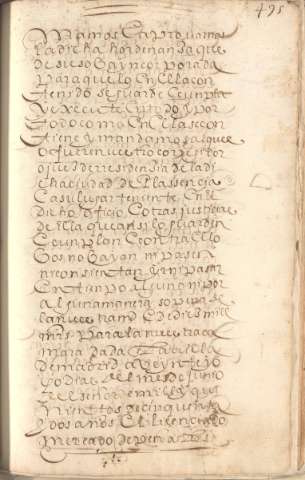 495
firmamos E aprovamos
la dicha hordenansa que
de suso va yncorporada
para que lo en ella con
tenido se guarde cunpla
y execute en todo y por
todo como en ella se con
tiene y mandamos al que es
o fuere nuestro corregidor
o jues de rresidensia de la di
cha ciudad de Plasencia
e a su lugar teniente en el
dicho oficio e otras justicias
de ella que ansi lo guarden
e cunplan e contra ello
no vayan ni pasen
ni consientan yr ni pasar
en tienpo alguno ni por
alguna manera so pena de
la nuestra md e de diez mill
mrs para la nuestra camara
dada en la villa
de madrid a veynte y o
cho dias del mes de junio
de mill y qui
nientos y cinquenta
y dos años el licenciado
mercado de peñalosa